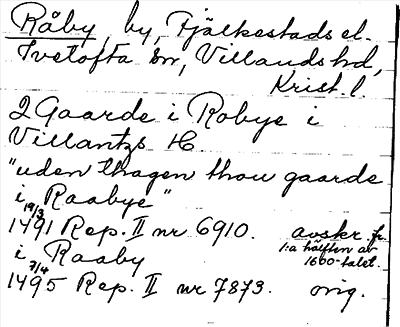 Råby, by, Fjälkestads el.
Tvetofta sn, Villands hd,
Krist. l.
2 Gaarde i Robye i
Villantzs H.
"uden thagen thou gaarde
i Raabye"
19/3
1491 Rep. II nr 6910. avskr. fr.
1:a hälften av
1600-talet.
i Raaby
7/4
1495 Rep. II nr 7873. orig.